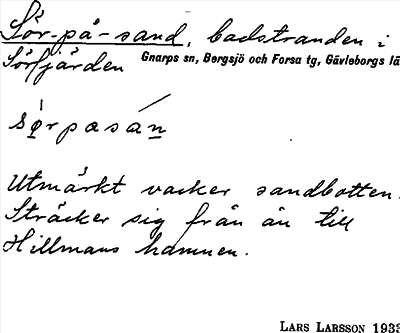 Sör-på-sand, badstranden i
Sörfjärden Gnarps sn, Bergsjö och Forsa tg, Gävleborgs lä
sørpasán
Utmärkt vacker sandbotten.
Sträcker sig från ån till
Hillmans hamnen.
LARS LARSSON 1933